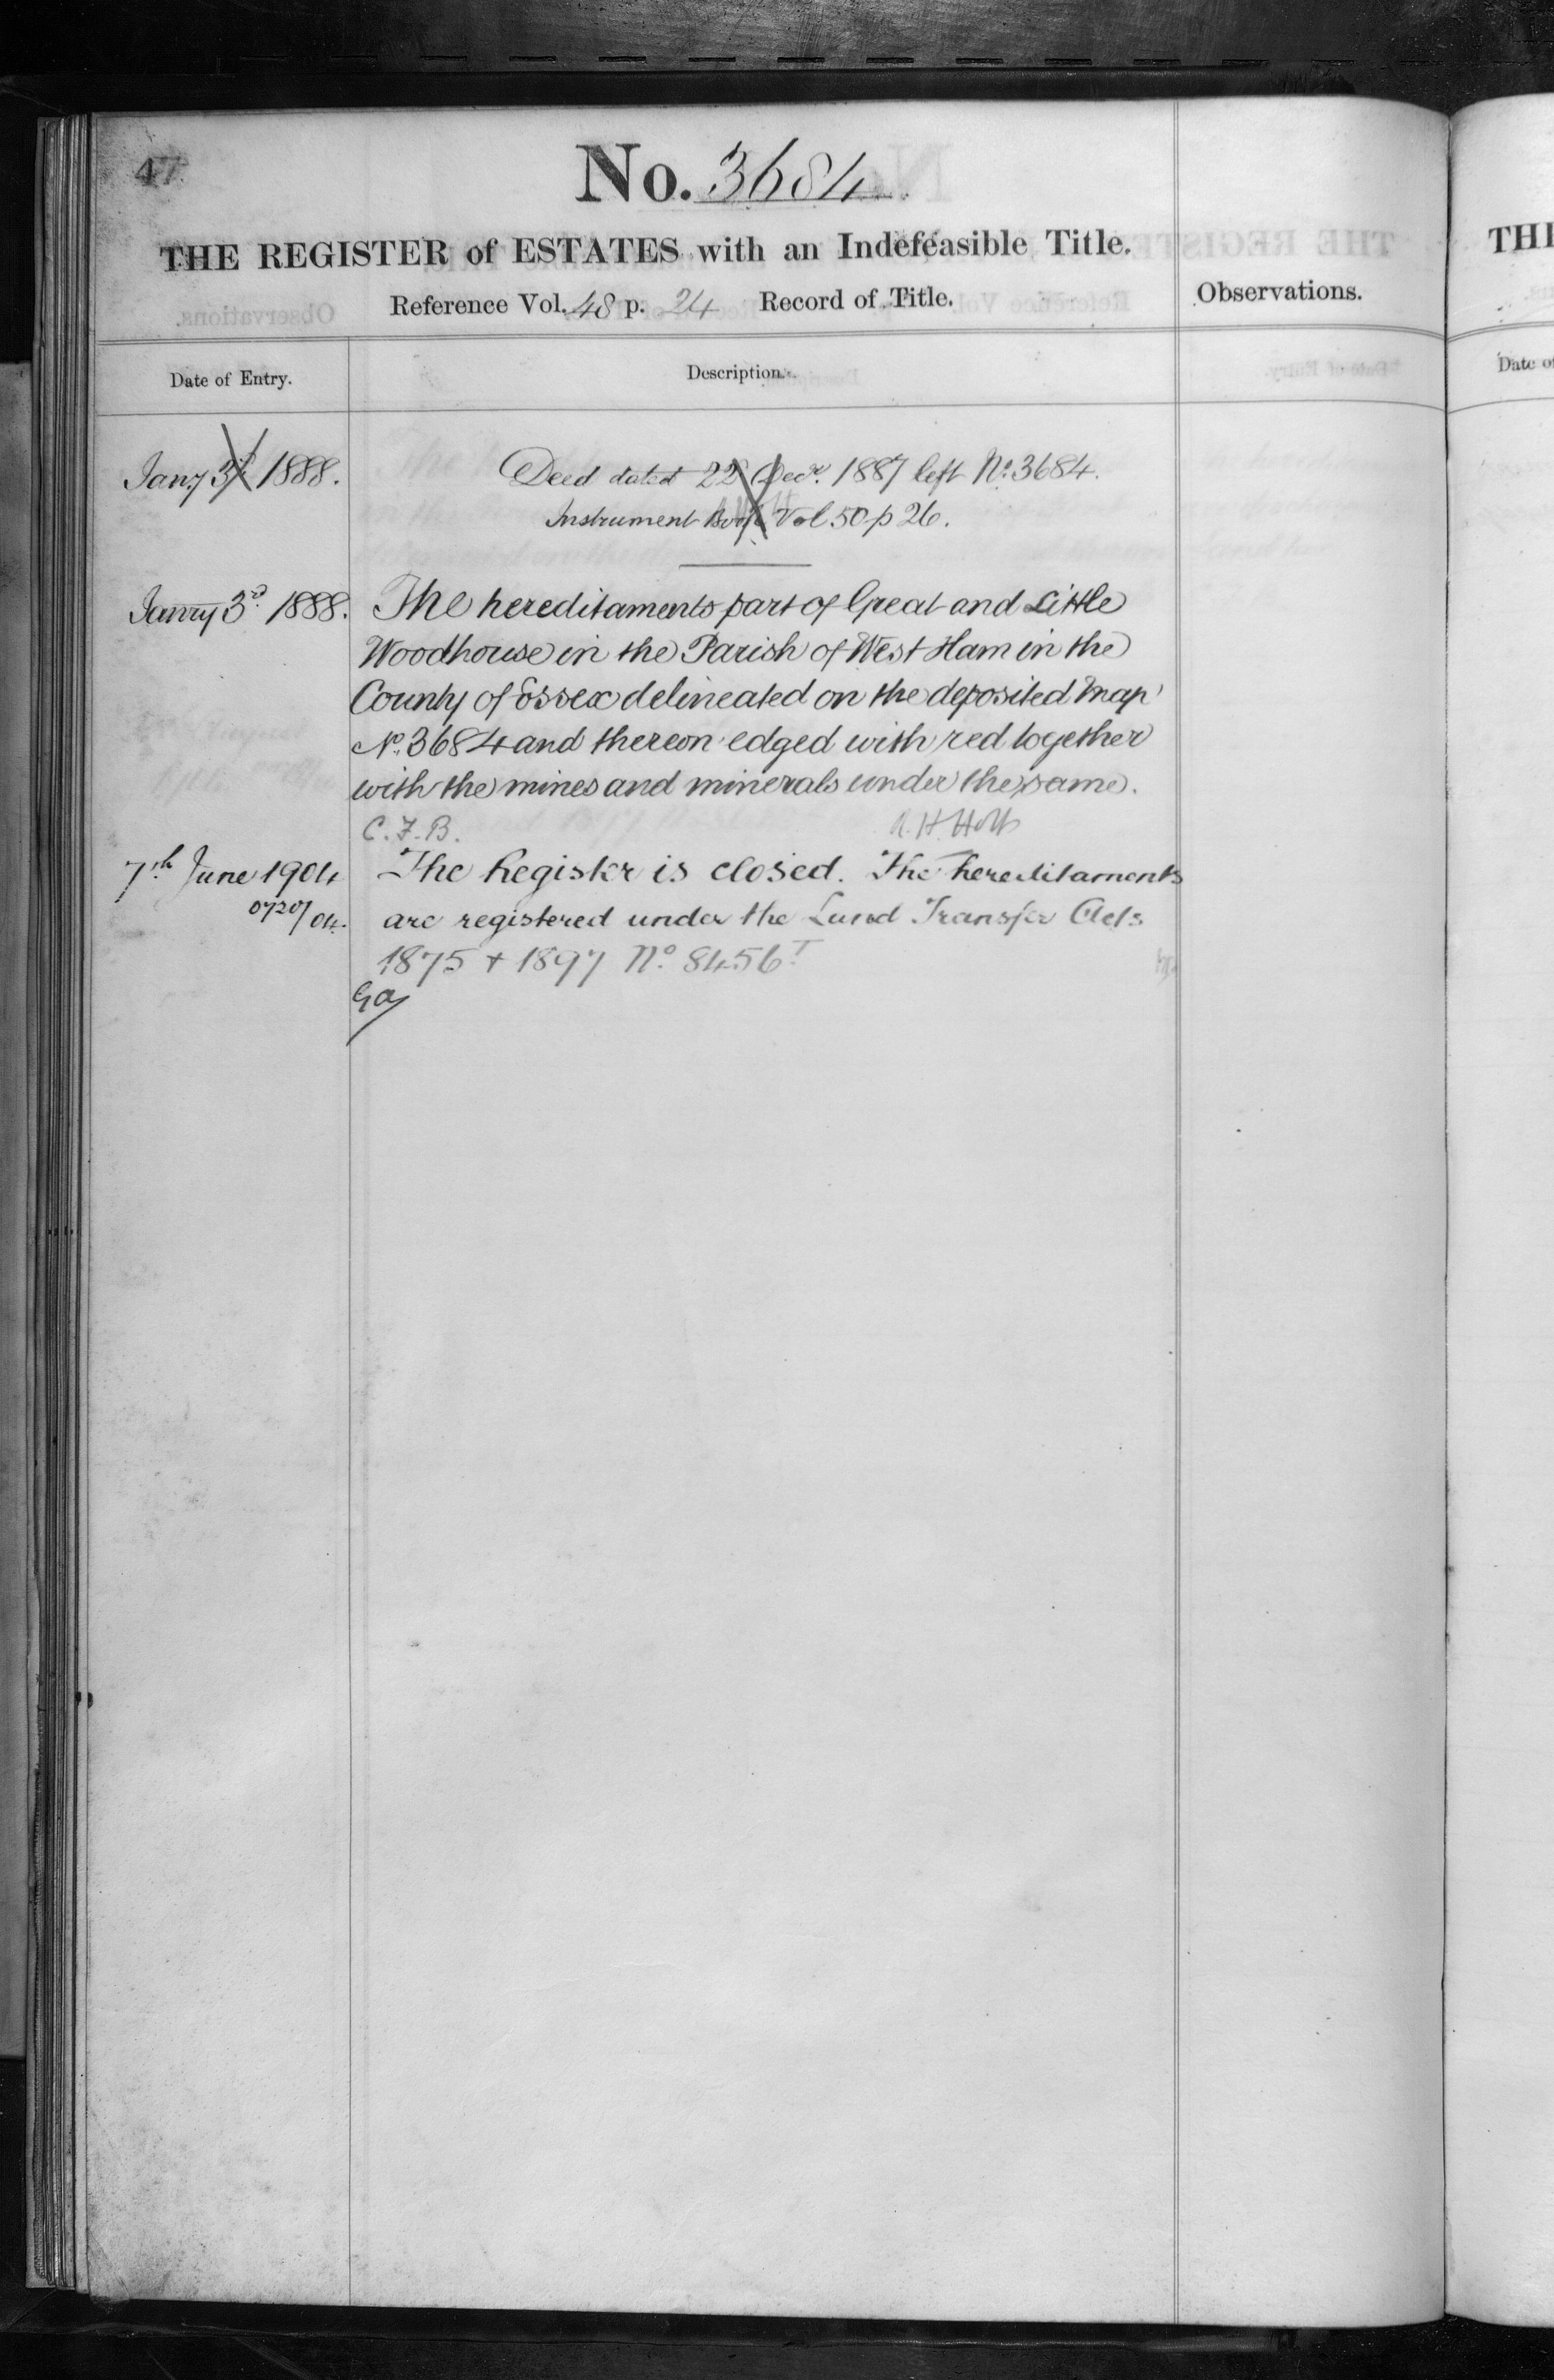 47
No. 3684
THE REGISTER of ESTATES with an Indefeasible Title.
Reference Vol. 48 p. 24 Record of Title.
Observations.
Date of Entry.
Description.
Jany 3d 1888.
Deed dated 22d Decr. 1887 left No. 3684.
Instrument Book Vol 50 p 26.
Janry 3d. 1888.
The hereditaments part of Great and Little
Woodhouse in the Parish of West Ham in the
County of Essex delineated on the deposited Map
No. 3684 and thereon edged with red together
with the mines and minerals under the same.
C.F.B.
A.H. Holt
7th June 1904
0720/04.
The Register is closed. The hereditaments
are registered under the Land Transfer Acts
1875 + 1897 No. 8456T
THE
Date of